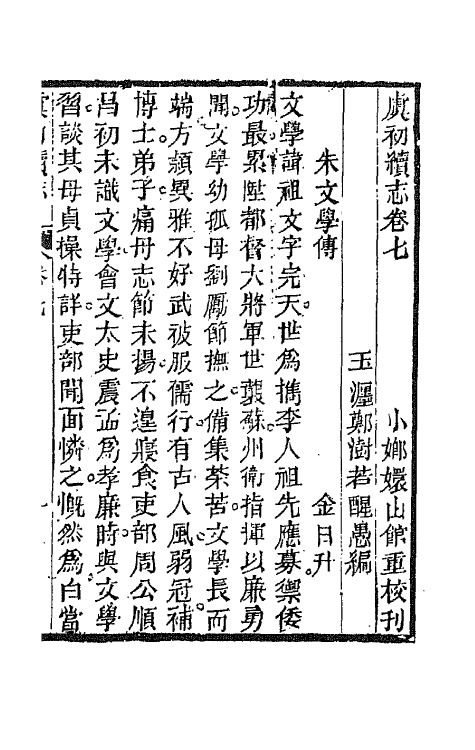 虞初續志卷七　小嫏嬛山館重校刊
玉瀣鄭澍若醒愚編
朱文學傳　金日升
文學諱祖文字完天世爲擕李人祖先應募禦倭
功最累陞都督大將軍世襲蘇州衛指揮以廉勇
聞文學幼孤母劉勵節撫之備集荼苦文學長而
端方穎異雅不好武被服儒行有古人風弱冠補
博士弟子痛母志節未揚不遑寢食吏部周公順
昌初未識文學會文太史震孟爲孝廉時與文學
習談其母貞操特詳吏部聞面憐之慨然爲白當
卷七